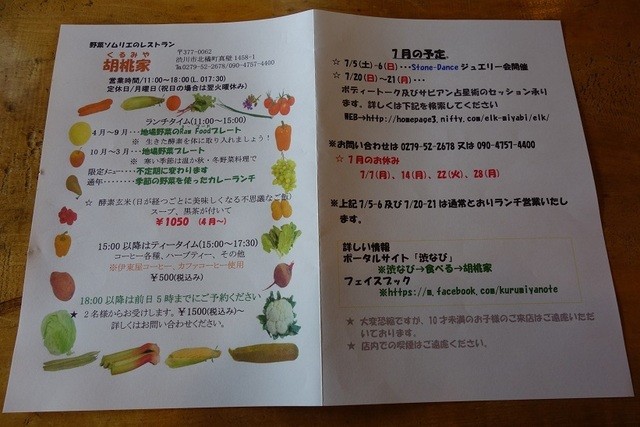 野菜ソムリエのレストラン
くるみや
胡桃家
〒377-0062
渋川市北橘町真壁 1458-1
℡0279-52-2678/090-4757-4400
営業時間/11:00~18:00(L.O17:30)
定休日/月曜日(祝日の場合は翌火曜休み)
ランチタイム(11:00~15:00)
4月~9月・・・地場野菜のRaw Foodプレート
※ 生きた酵素を体に取り入れましょう!
10月~3月・・・地場野菜プレート
※ 寒い季節は温か秋・冬野菜料理で
限定メニュー・・・不定期に変わります
通年・・・・・・季節の野菜を使ったカレーランチ
☆ 酵素玄米(日が経つごとに美味しくなる不思議なご飯)
スープ、黒茶が付いて
¥1050 (4月~)
15:00 以降はティータイム(15:00~17:30)
コーヒー各種、ハーブティー、その他
※伊東屋コーヒー、カフッコーヒー使用
¥500(税込み)
18:00 以降は前日5時までにご予約ください
★ 2名様からお受けします。¥1500(税込み)~
詳しくはお問い合わせください。
7月の予定
☆ 7/5(土)-6(日)・・・Stone-Danceジュエリー会開催
☆ 7/20(日)~21(月)・・・
ボディートーク及びサビアン占星術のセッション承り
ます。詳しくは下記を検索してください
WEB→http://homepage3.nifty.com/elk-miyabi/elk/
※お問い合わせは 0279-52-2678 又は 090-4757-4400
☆ 7月のお休み
7/7(月)、14(月)、22(火)、28(月)
※上記 7/5-6 及び 7/20-21 は通常とおりランチ営業いたし
ます。
詳しい情報
ポータルサイト「渋なび」
※渋なび→食べる→胡桃家
フェイスブック
※https://m.facebook.com/kurumiyanote
★ 大変恐縮ですが、10才未満のお子様のご来店はご遠慮いただ
いております。
★ 店内での喫煙はご遠慮ください。